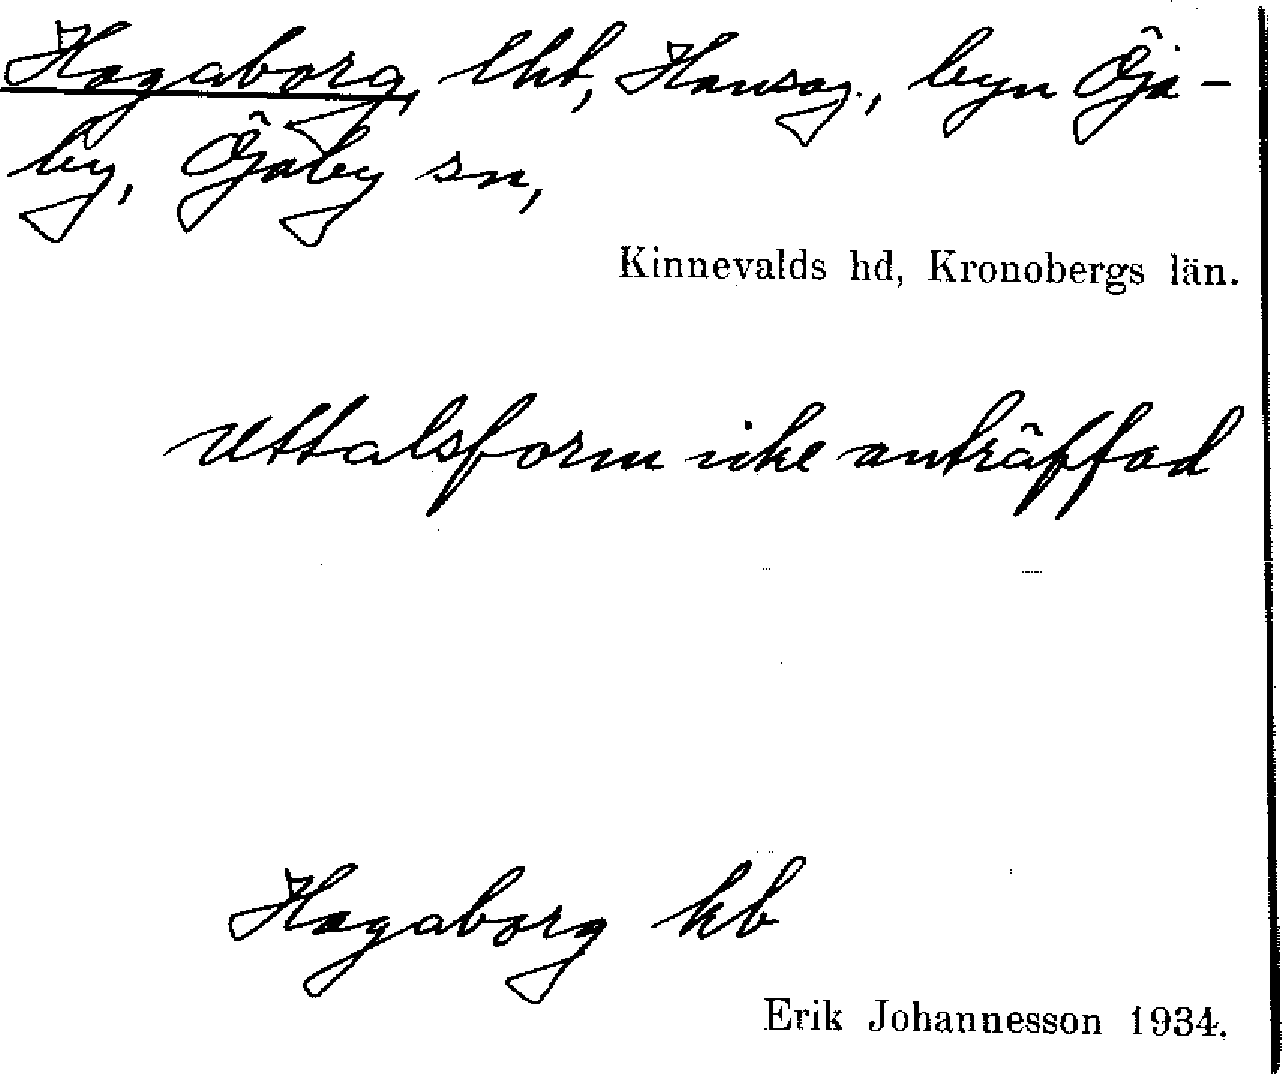 Hagaborg, lht, Hansag., byn Öja-
by, Öjaby sn,
Kinnevalds hd, Kronobergs län.
Uttalsform icke anträffad
Hagaborg kb
Erik Johannesson 1934.